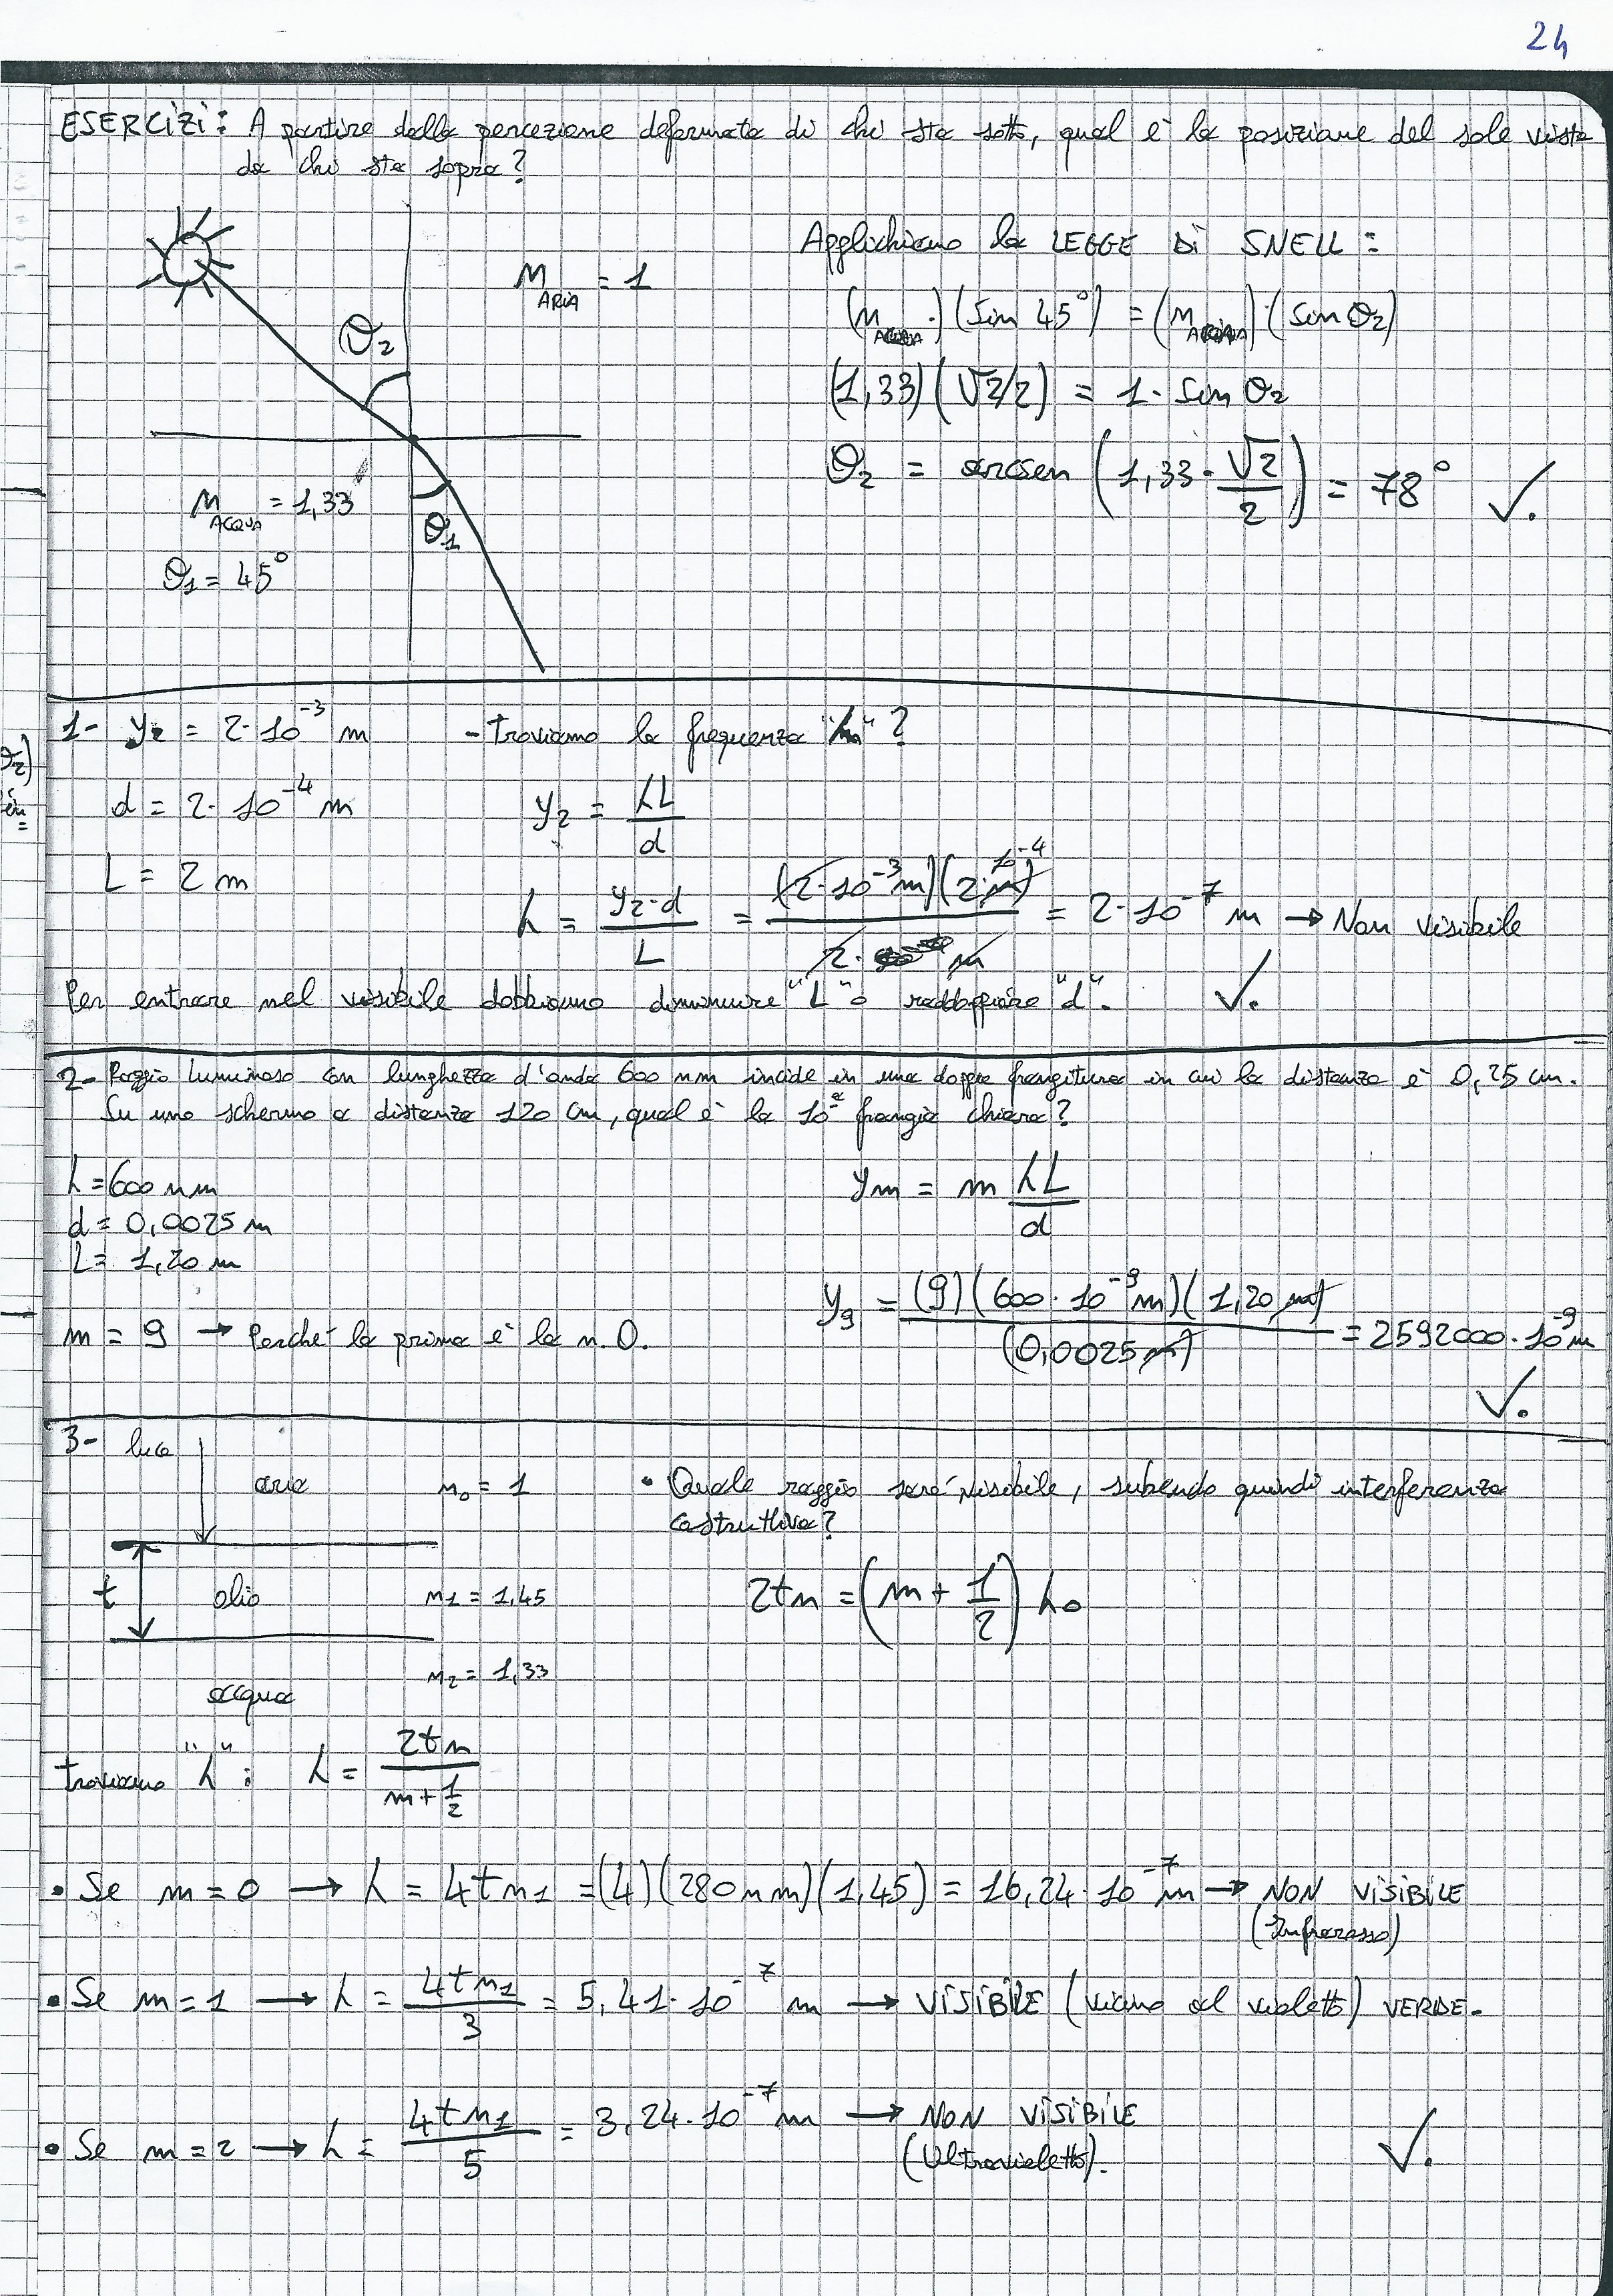 24
ESERCIZI: A partire dalla percezione deformata di chi sta sotto, qual è la posizione del sole vista
da chi sta sopra?
Applichiamo la LEGGE DI SNELL:
n ARIA = 1
(n ACQUA ·) (sin 45°) = (n ARIA) · (sin θ2)
θ2
(1,33) (√2/2) = 1 · sin θ2
θ2 = arcsen (1,33 · √2/2) = 78° ✓.
n ACQUA = 1,33
θ1
θ1 = 45°
1- y2 = 2·10⁻³ m - Troviamo la frequenza "λ"?
d = 2·10⁻⁴ m y2 = λL/d
L = 2 m
λ = y2·d/L = (2·10⁻³ m)(2·10⁻⁴ m)/2 m = 2·10⁻⁷ m → Non visibile
Per entrare nel visibile dobbiamo diminuire "L" o raddoppiare "d". ✓.
2- Raggio luminoso con lunghezza d'onda 600 nm incide in una doppia frangitura in cui la distanza è 0,25 cm.
Su uno schermo a distanza 120 cm, qual è la 10ª frangia chiara?
λ = 600 nm
ym = m λL/d
d = 0,0025 m
L = 1,20 m
y9 = (9)(600·10⁻⁹ m)(1,20 m)/(0,0025 m) = 2592000·10⁻⁹ m
m = 9 → Perché la prima è la n. 0.
✓.
3- luce
aria n0 = 1 • Quale raggio sarà visibile, subendo quindi interferenza
costruttiva?
t olio n1 = 1,45 2tn = (m + 1/2) λ0
n2 = 1,33
acqua
troviamo "λ": λ = 2tn/(m + 1/2)
• Se m = 0 → λ = 4tn1 = (4)(280 nm)(1,45) = 16,24·10⁻⁷ m → NON VISIBILE
(Infrarosso)
• Se m = 1 → λ = 4tn1/3 = 5,41·10⁻⁷ m → VISIBILE (vicino al violetto) VERDE.
• Se m = 2 → λ = 4tn1/5 = 3,24·10⁻⁷ m → NON VISIBILE
(Ultravioletto). ✓.